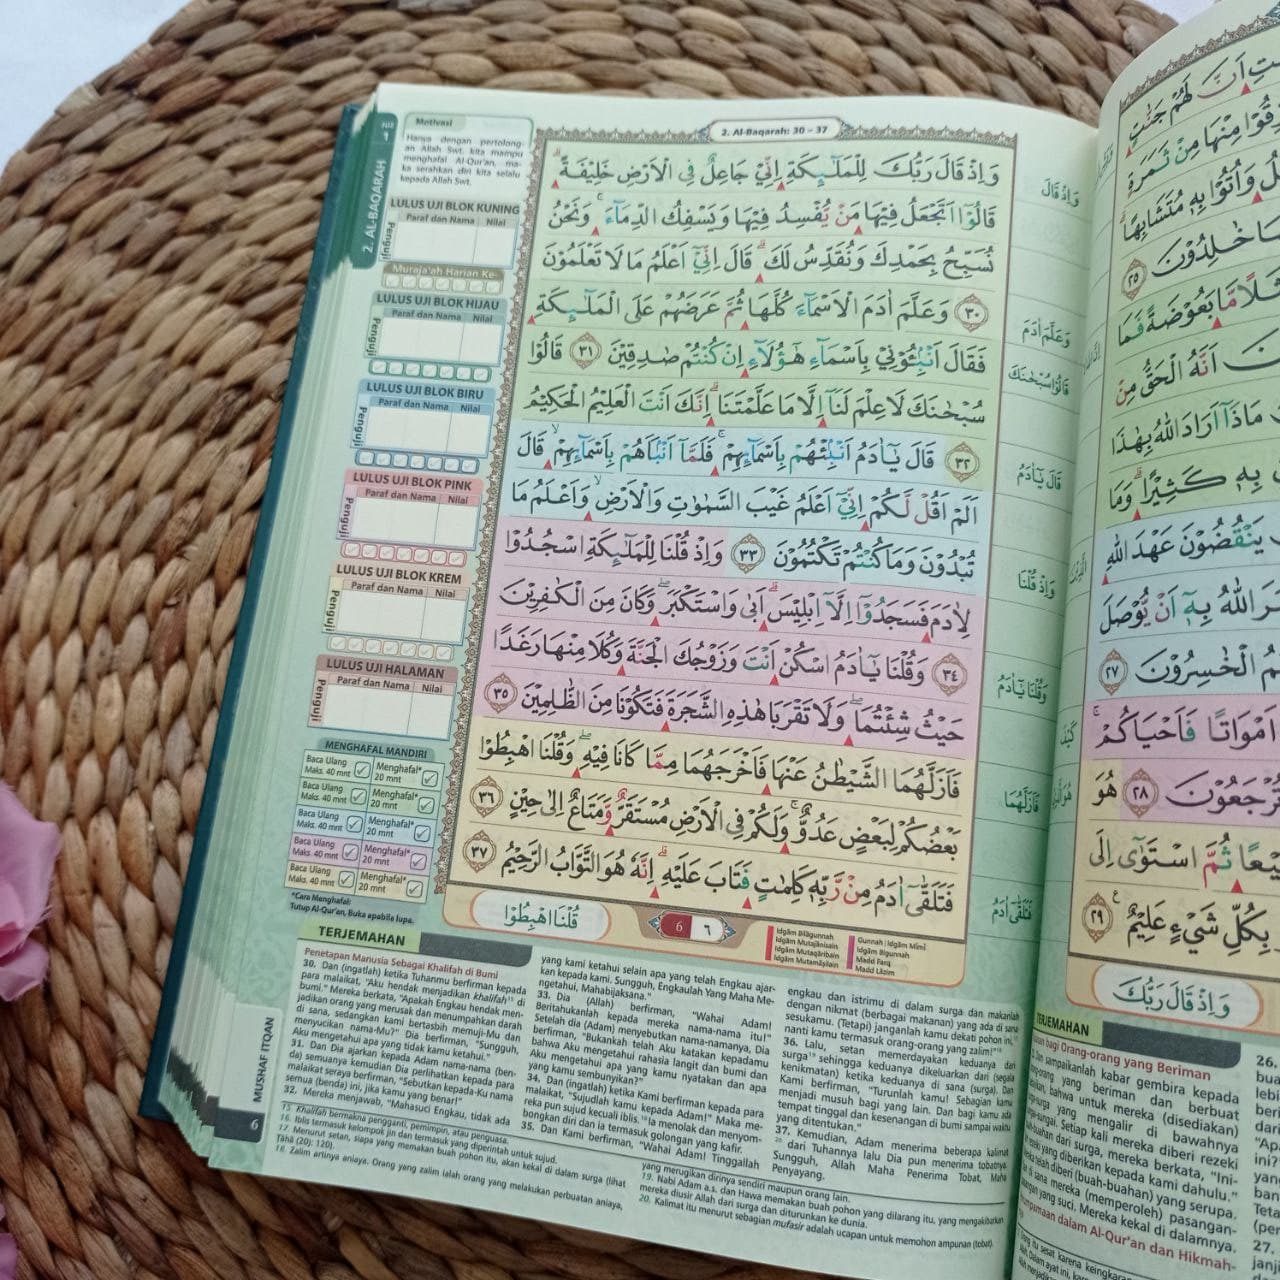 JUZ 1
2. AL-BAQARAH
Motivasi
Hanya dengan pertolong-
an Allah Swt. kita mampu
menghafal Al-Qur'an, ma-
ka serahkan diri kita selalu
kepada Allah Swt.
LULUS UJI BLOK KUNING
Paraf dan Nama Nilai
Penguji
Muraja'ah Harian Ke-
LULUS UJI BLOK HIJAU
Paraf dan Nama Nilai
Penguji
LULUS UJI BLOK BIRU
Paraf dan Nama Nilai
Penguji
LULUS UJI BLOK PINK
Paraf dan Nama Nilai
Penguji
LULUS UJI BLOK KREM
Paraf dan Nama Nilai
Penguji
LULUS UJI HALAMAN
Paraf dan Nama Nilai
Penguji
MENGHAFAL MANDIRI
Baca Ulang Maks. 40 mnt Menghafal* 20 mnt
Baca Ulang Maks. 40 mnt Menghafal* 20 mnt
Baca Ulang Maks. 40 mnt Menghafal* 20 mnt
Baca Ulang Maks. 40 mnt Menghafal* 20 mnt
Baca Ulang Maks. 40 mnt Menghafal* 20 mnt
*Cara Menghafal:
Tutup Al-Qur'an, Buka apabila lupa.
2. Al-Baqarah: 30 – 37
وَاِذْ قَالَ رَبُّكَ لِلْمَلٰۤىِٕكَةِ اِنِّيْ جَاعِلٌ فِى الْاَرْضِ خَلِيْفَةً ۗ
قَالُوْٓا اَتَجْعَلُ فِيْهَا مَنْ يُّفْسِدُ فِيْهَا وَيَسْفِكُ الدِّمَاۤءَ ۚ وَنَحْنُ
نُسَبِّحُ بِحَمْدِكَ وَنُقَدِّسُ لَكَ ۗ قَالَ اِنِّيْٓ اَعْلَمُ مَا لَا تَعْلَمُوْنَ
٣٠ وَعَلَّمَ اٰدَمَ الْاَسْمَاۤءَ كُلَّهَا ثُمَّ عَرَضَهُمْ عَلَى الْمَلٰۤىِٕكَةِ
فَقَالَ اَنْۢبِـُٔوْنِيْ بِاَسْمَاۤءِ هٰٓؤُلَاۤءِ اِنْ كُنْتُمْ صٰدِقِيْنَ ٣١ قَالُوْا
سُبْحٰنَكَ لَا عِلْمَ لَنَآ اِلَّا مَا عَلَّمْتَنَا ۗاِنَّكَ اَنْتَ الْعَلِيْمُ الْحَكِيْمُ
٣٢ قَالَ يٰٓاٰدَمُ اَنْۢبِئْهُمْ بِاَسْمَاۤىِٕهِمْ ۚ فَلَمَّآ اَنْۢبَاَهُمْ بِاَسْمَاۤىِٕهِمْ ۙ قَالَ
اَلَمْ اَقُلْ لَّكُمْ اِنِّيْٓ اَعْلَمُ غَيْبَ السَّمٰوٰتِ وَالْاَرْضِۙ وَاَعْلَمُ مَا
تُبْدُوْنَ وَمَا كُنْتُمْ تَكْتُمُوْنَ ٣٣ وَاِذْ قُلْنَا لِلْمَلٰۤىِٕكَةِ اسْجُدُوْا
لِاٰدَمَ فَسَجَدُوْٓا اِلَّآ اِبْلِيْسَۗ اَبٰى وَاسْتَكْبَرَۖ وَكَانَ مِنَ الْكٰفِرِيْنَ
٣٤ وَقُلْنَا يٰٓاٰدَمُ اسْكُنْ اَنْتَ وَزَوْجُكَ الْجَنَّةَ وَكُلَا مِنْهَا رَغَدًا
حَيْثُ شِئْتُمَاۖ وَلَا تَقْرَبَا هٰذِهِ الشَّجَرَةَ فَتَكُوْنَا مِنَ الظّٰلِمِيْنَ ٣٥
فَاَزَلَّهُمَا الشَّيْطٰنُ عَنْهَا فَاَخْرَجَهُمَا مِمَّا كَانَا فِيْهِۖ وَقُلْنَا اهْبِطُوْا
بَعْضُكُمْ لِبَعْضٍ عَدُوٌّۚ وَلَكُمْ فِى الْاَرْضِ مُسْتَقَرٌّ وَّمَتَاعٌ اِلٰى حِيْنٍ ٣٦
فَتَلَقّٰٓى اٰدَمُ مِنْ رَّبِّهٖ كَلِمٰتٍ فَتَابَ عَلَيْهِۗ اِنَّهٗ هُوَ التَّوَّابُ الرَّحِيْمُ ٣٧
قُلْنَا اهْبِطُوْا
6 ٦
Idgām Bilāgunnah
Idgām Mutajānisain
Idgām Mutaqāribain
Idgām Mutamāṡilain
Gunnah | Idgām Mīmī
Idgām Bigunnah
Madd Farq
Madd Lāzim
وَاِذْ قَالَ
وَعَلَّمَ اٰدَمَ
قَالُوْا سُبْحٰنَكَ
قَالَ يٰٓاٰدَمُ
وَاِذْ قُلْنَا
وَقُلْنَا يٰٓاٰدَمُ
فَاَزَلَّهُمَا
فَتَلَقّٰٓى اٰدَمُ
TERJEMAHAN
Penetapan Manusia Sebagai Khalifah di Bumi
30. Dan (ingatlah) ketika Tuhanmu berfirman kepada
para malaikat, "Aku hendak menjadikan khalifah¹⁵ di
bumi." Mereka berkata, "Apakah Engkau hendak men-
jadikan orang yang merusak dan menumpahkan darah
di sana, sedangkan kami bertasbih memuji-Mu dan
menyucikan nama-Mu?" Dia berfirman, "Sungguh,
Aku mengetahui apa yang tidak kamu ketahui."
31. Dan Dia ajarkan kepada Adam nama-nama (ben-
da) semuanya kemudian Dia perlihatkan kepada para
malaikat seraya berfirman, "Sebutkan kepada-Ku nama
semua (benda) ini, jika kamu yang benar!"
32. Mereka menjawab, "Mahasuci Engkau, tidak ada
yang kami ketahui selain apa yang telah Engkau ajar-
kan kepada kami. Sungguh, Engkaulah Yang Maha Me-
ngetahui, Mahabijaksana."
33. Dia (Allah) berfirman, "Wahai Adam!
Beritahukanlah kepada mereka nama-nama itu!"
Setelah dia (Adam) menyebutkan nama-namanya, Dia
berfirman, "Bukankah telah Aku katakan kepadamu
bahwa Aku mengetahui rahasia langit dan bumi dan
Aku mengetahui apa yang kamu nyatakan dan apa
yang kamu sembunyikan?"
34. Dan (ingatlah) ketika Kami berfirman kepada para
malaikat, "Sujudlah kamu kepada Adam!" Maka me-
reka pun sujud kecuali iblis.¹⁶ Ia menolak dan menyom-
bongkan diri dan ia termasuk golongan yang kafir.
35. Dan Kami berfirman, "Wahai Adam! Tinggallah
engkau dan istrimu di dalam surga dan makanlah
dengan nikmat (berbagai makanan) yang ada di sana
sesukamu. (Tetapi) janganlah kamu dekati pohon ini,¹⁷
nanti kamu termasuk orang-orang yang zalim!"¹⁸
36. Lalu, setan memerdayakan keduanya dari
surga¹⁹ sehingga keduanya dikeluarkan dari (segala
kenikmatan) ketika keduanya di sana (surga). Dan
Kami berfirman, "Turunlah kamu! Sebagian kamu
menjadi musuh bagi yang lain. Dan bagi kamu ada
tempat tinggal dan kesenangan di bumi sampai waktu
yang ditentukan."
37. Kemudian, Adam menerima beberapa kalimat
²⁰ dari Tuhannya lalu Dia pun menerima tobatnya.
Sungguh, Allah Maha Penerima Tobat, Maha
Penyayang.
15. Khalifah bermakna pengganti, pemimpin, atau penguasa.
16. Iblis termasuk kelompok jin dan termasuk yang diperintah untuk sujud.
17. Menurut setan, siapa yang memakan buah pohon itu, akan kekal di dalam surga (lihat
Ṭāhā (20): 120).
18. Zalim artinya aniaya. Orang yang zalim ialah orang yang melakukan perbuatan aniaya,
yang merugikan dirinya sendiri maupun orang lain.
19. Nabi Adam a.s. dan Hawa memakan buah pohon yang dilarang itu, yang mengakibatkan
mereka diusir Allah dari surga dan diturunkan ke dunia.
20. Kalimat itu menurut sebagian mufasir adalah ucapan untuk memohon ampunan (tobat).
MUSHAF ITQAN
6
اَنَّ لَهُمْ جَنّٰتٍ
مِنْهَا مِنْ ثَمَرَةٍ
وَاُتُوْا بِهٖ مُتَشَابِهًا
خٰلِدُوْنَ ٢٥
مَّا بَعُوْضَةً فَمَا
اَنَّهُ الْحَقُّ مِنْ
مَاذَآ اَرَادَ اللّٰهُ بِهٰذَا
بِهٖ كَثِيْرًا ۗ وَمَا
يَنْقُضُوْنَ عَهْدَ اللّٰهِ
اللّٰهُ بِهٖٓ اَنْ يُّوْصَلَ
الْخٰسِرُوْنَ ٢٧
اَمْوَاتًا فَاَحْيَاكُمْ
تُرْجَعُوْنَ ٢٨ هُوَ
ثُمَّ اسْتَوٰٓى اِلَى
بِكُلِّ شَيْءٍ عَلِيْمٌ ٢٩
وَاِذْ قَالَ رَبُّكَ
TERJEMAHAN
bagi Orang-orang yang Beriman
sampaikanlah kabar gembira kepada
yang beriman dan berbuat
bahwa untuk mereka (disediakan)
yang mengalir di bawahnya
Setiap kali mereka diberi rezeki
dari surga, mereka berkata, "Ini-
yang diberikan kepada kami dahulu."
diberi (buah-buahan) yang serupa,
sana mereka (memperoleh) pasangan-
yang suci. Mereka kekal di dalamnya.
dalam Al-Qur'an dan Hikmah-
26.
27.